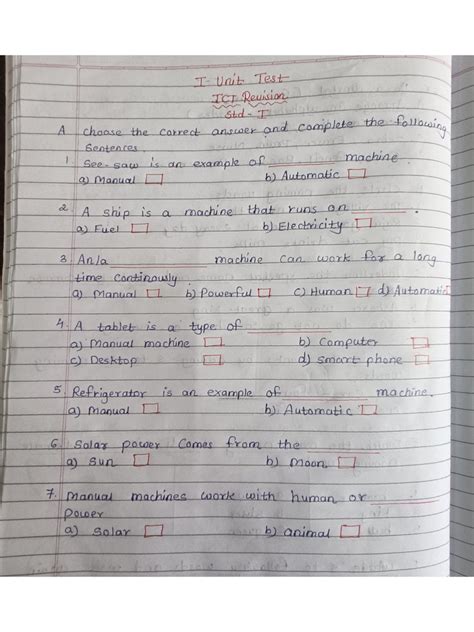 I - Unit Test
ICT Revision
Std - I
A choose the correct answer and complete the following
Sentences.
1 See-saw is an example of ________ machine.
a) Manual □ b) Automatic □
2. A ship is a machine that runs on ________.
a) Fuel □ b) Electricity □
3. An/a ________ machine can work for a long
time continously.
a) Manual □ b) Powerful □ c) Human □ d) Automatic □
4. A tablet is a type of ________
a) Manual machine □ b) Computer □
c) Desktop □ d) Smart phone □
5. Refrigerator is an example of ________ machine.
a) Manual □ b) Automatic □
6. Solar power Comes from the ________
a) Sun □ b) Moon. □
7. Manual machines work with human or ________
power
a) Solar □ b) animal □